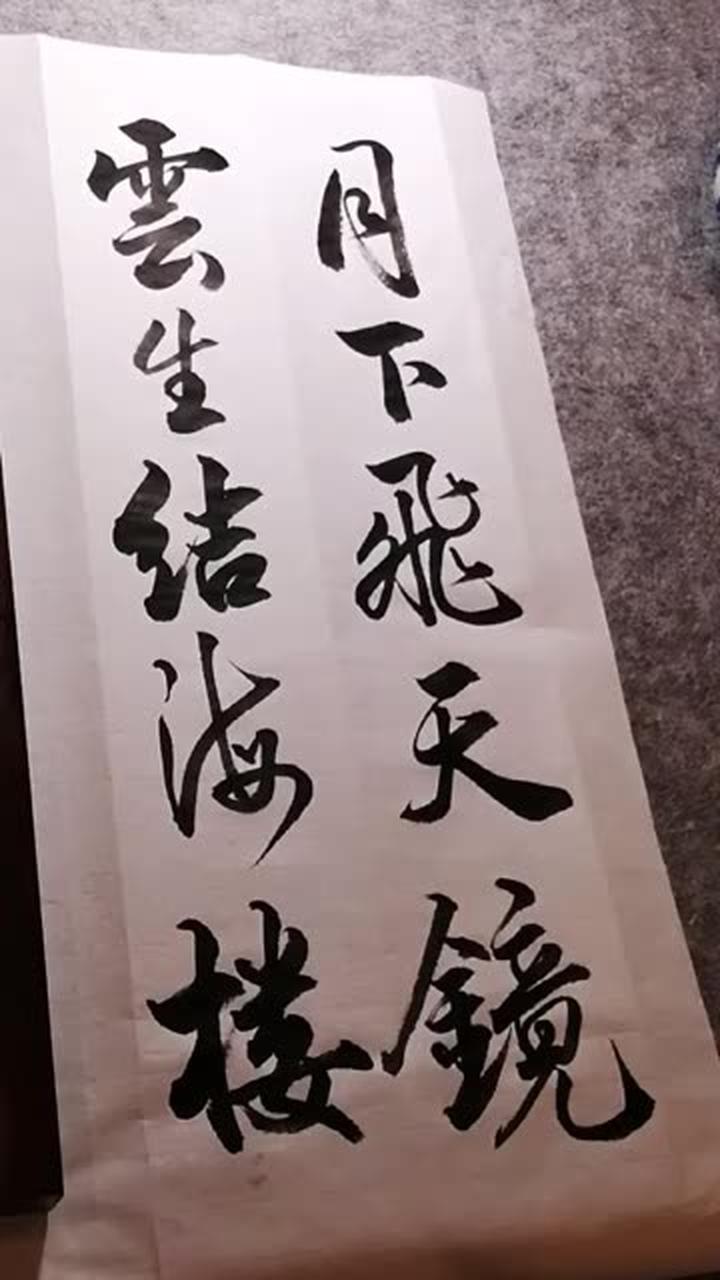 月下飛天鏡
雲生结海楼